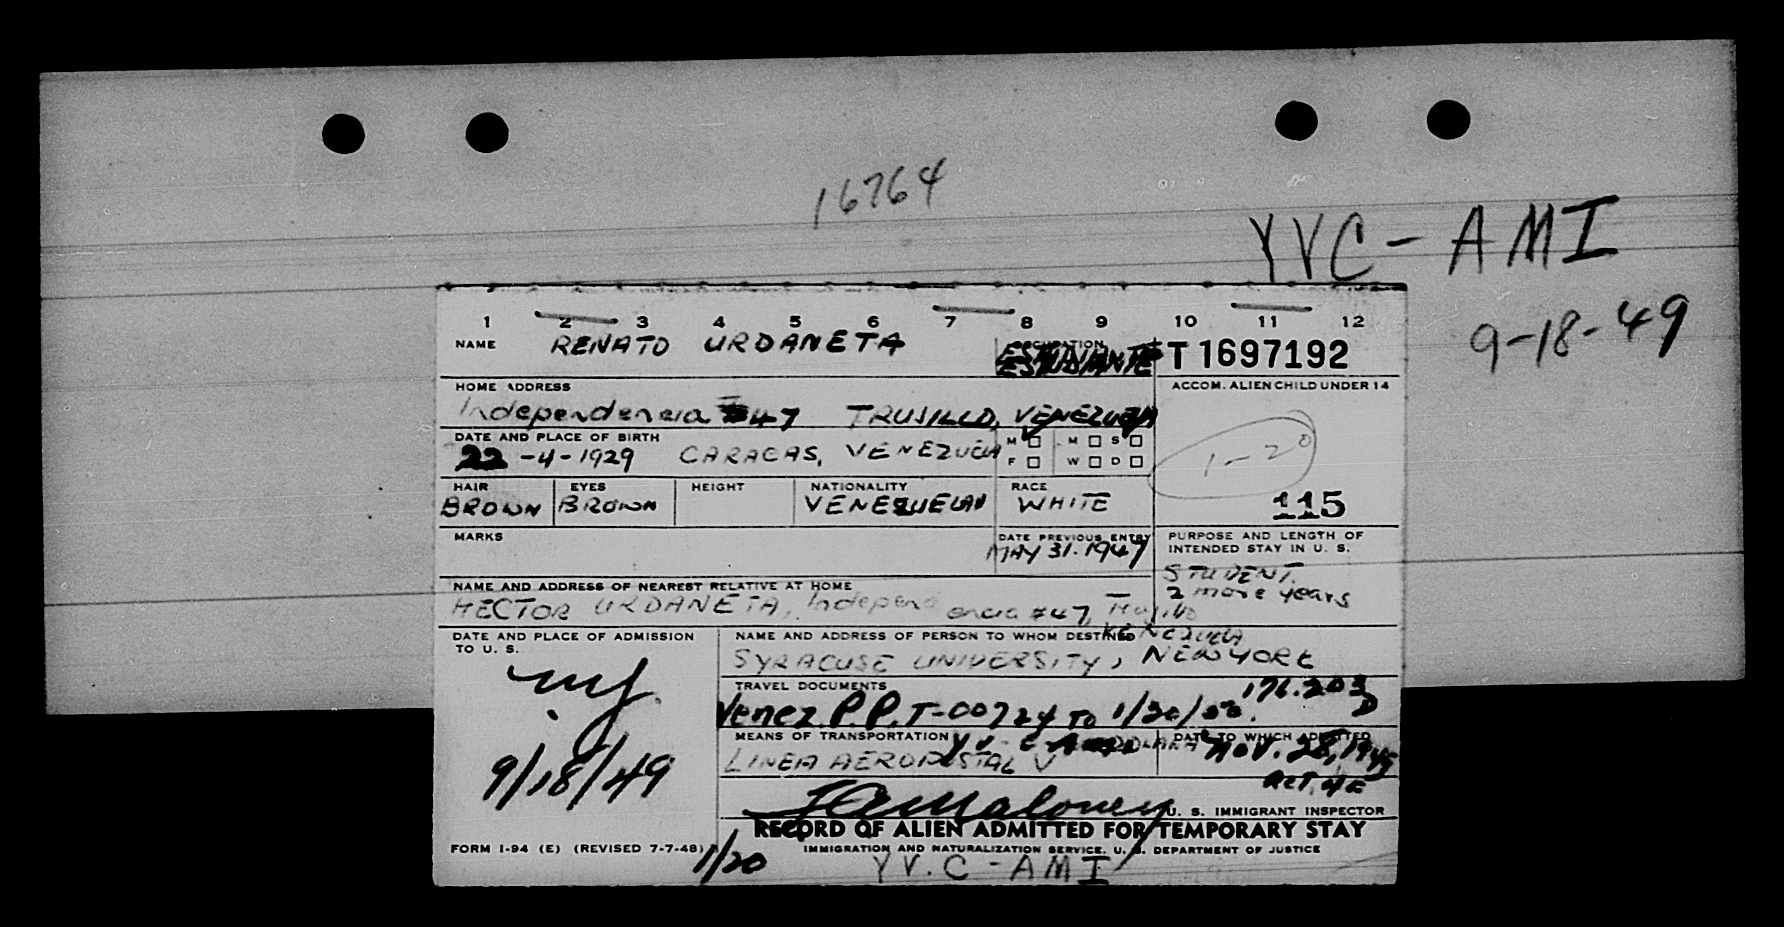 16764
YVC - AMI
9-18-49
1 2 3 4 5 6 7 8 9 10 11 12
NAME RENATO URDANETA OCCUPATION ESTUDIANTE T 1697192
HOME ADDRESS ACCOM. ALIEN CHILD UNDER 14
Independencia #47 TRUJILLO, VENEZUELA
DATE AND PLACE OF BIRTH M M S
22-4-1929 CARACAS, VENEZUELA F W D
1-20
HAIR EYES HEIGHT NATIONALITY RACE
BROWN BROWN VENEZUELAN WHITE 115
MARKS DATE PREVIOUS ENTRY PURPOSE AND LENGTH OF INTENDED STAY IN U. S.
MAY 31. 1947 STUDENT.
2 more years
NAME AND ADDRESS OF NEAREST RELATIVE AT HOME
HECTOR URDANETA, Independencia #47, Trujillo
VENEZUELA
DATE AND PLACE OF ADMISSION TO U. S. NAME AND ADDRESS OF PERSON TO WHOM DESTINED
SYRACUSE UNIVERSITY, NEW YORK
TRAVEL DOCUMENTS
Venez. P.P. T-00724 TO 1/20/50. 176.203
MEANS OF TRANSPORTATION DATE TO WHICH ADMITTED
LINEA AEROPOSTAL V Nov. 28, 1949
9/18/49
ACT. 4E
U. S. IMMIGRANT INSPECTOR
RECORD OF ALIEN ADMITTED FOR TEMPORARY STAY
FORM I-94 (E) (REVISED 7-7-48) IMMIGRATION AND NATURALIZATION SERVICE, U. S. DEPARTMENT OF JUSTICE
1/20 YV.C - AMI